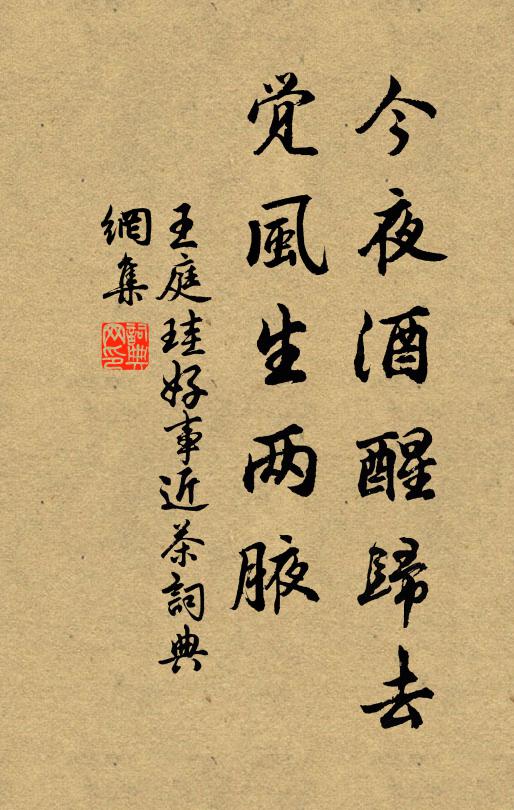 今夜酒醒歸去
觉風生两腋
王庭珪好事近茶詞典
網集
詞典
网印